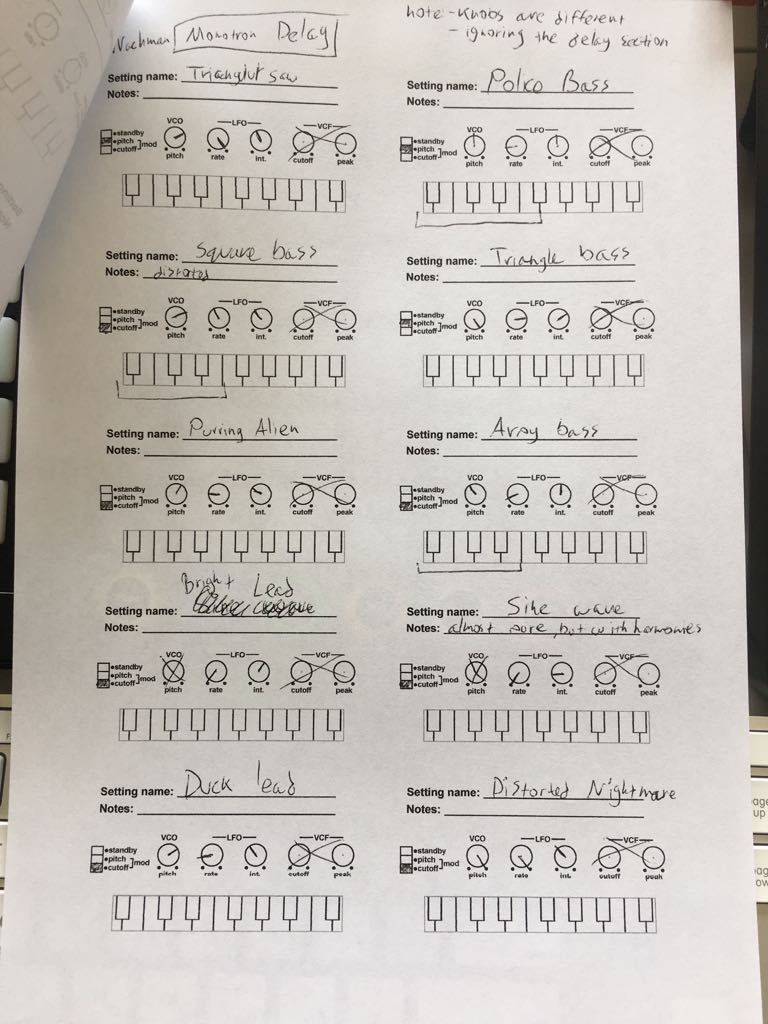 Nachman Monotron Delay
note - Knobs are different
- ignoring the delay section
Setting name: Trianglut saw
Notes:
standby
pitch
cutoff
mod
VCO
LFO
VCF
pitch
rate
int.
cutoff
peak
Setting name: Polko Bass
Notes:
standby
pitch
cutoff
mod
VCO
LFO
VCF
pitch
rate
int.
cutoff
peak
Setting name: Square bass
Notes: distorted
standby
pitch
cutoff
mod
VCO
LFO
VCF
pitch
rate
int.
cutoff
peak
Setting name: Triangle bass
Notes:
standby
pitch
cutoff
mod
VCO
LFO
VCF
pitch
rate
int.
cutoff
peak
Setting name: Purring Alien
Notes:
standby
pitch
cutoff
mod
VCO
LFO
VCF
pitch
rate
int.
cutoff
peak
Setting name: Arpy bass
Notes:
standby
pitch
cutoff
mod
VCO
LFO
VCF
pitch
rate
int.
cutoff
peak
Bright Lead
Setting name:
Notes:
standby
pitch
cutoff
mod
VCO
LFO
VCF
pitch
rate
int.
cutoff
peak
Setting name: Sine wave
Notes: almost pure, but with harmonics
standby
pitch
cutoff
mod
VCO
LFO
VCF
pitch
rate
int.
cutoff
peak
Setting name: Duck lead
Notes:
standby
pitch
cutoff
mod
VCO
LFO
VCF
pitch
rate
int.
cutoff
peak
Setting name: Distorted Nightmare
Notes:
standby
pitch
cutoff
mod
VCO
LFO
VCF
pitch
rate
int.
cutoff
peak